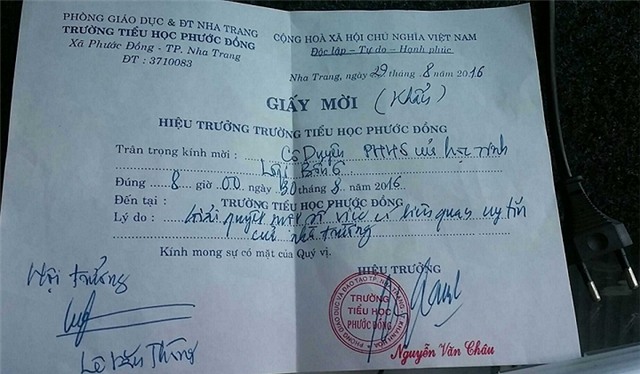 PHÒNG GIÁO DỤC & ĐT NHA TRANG
TRƯỜNG TIỂU HỌC PHƯỚC ĐỒNG
Xã Phước Đồng - TP. Nha Trang
ĐT : 3710083
CỘNG HOÀ XÃ HỘI CHỦ NGHĨA VIỆT NAM
Độc lập - Tự do - Hạnh phúc
Nha Trang, ngày 29 tháng 8 năm 2016
GIẤY MỜI (Khẩn)
HIỆU TRƯỞNG TRƯỜNG TIỂU HỌC PHƯỚC ĐỒNG
Trân trọng kính mời : Cô Duyên PHHS của học sinh
Đúng 8 giờ 00 ngày 30 tháng 8 năm 2016
Đến tại : TRƯỜNG TIỂU HỌC PHƯỚC ĐỒNG
Lý do : Giải quyết một số việc có liên quan uy tín
của nhà trường
Kính mong sự có mặt của Quý vị.
Hội trưởng
HIỆU TRƯỞNG
PHÒNG GIÁO DỤC VÀ ĐÀO TẠO TP. NHA TRANG
KHÁNH HÒA
TRƯỜNG
TIỂU HỌC
PHƯỚC ĐỒNG
Nguyễn Văn Châu
Lê Văn Thông